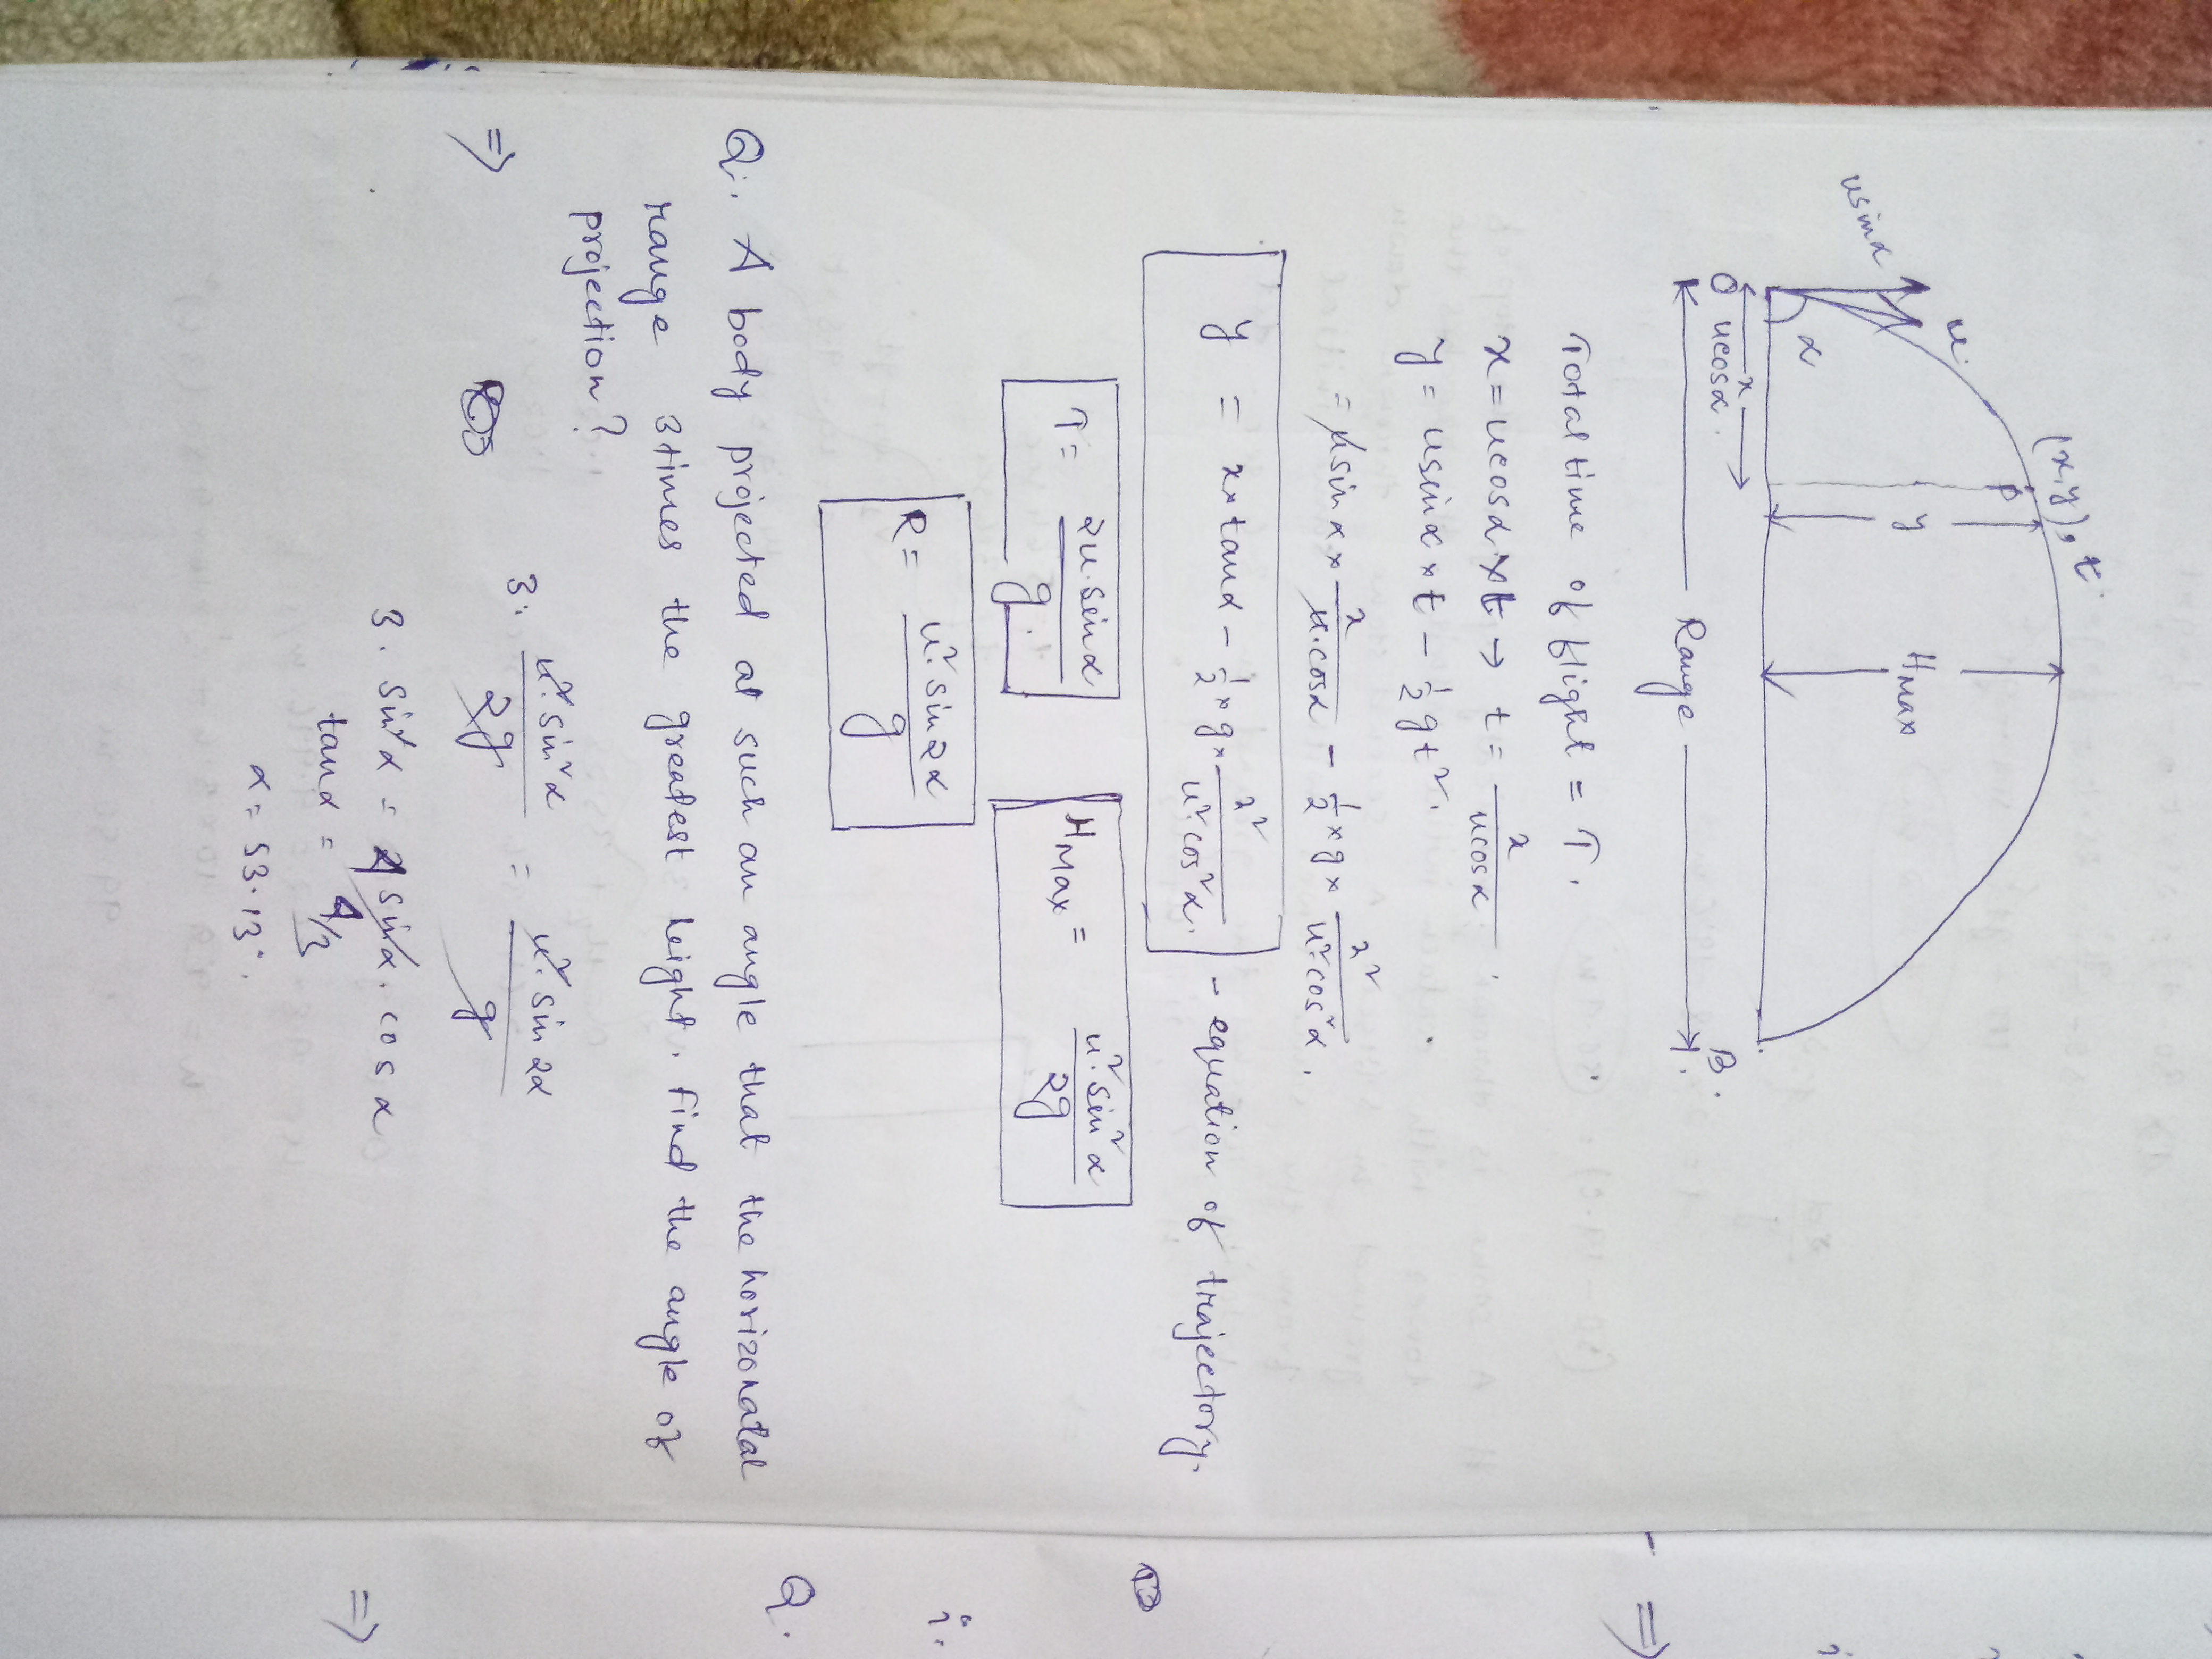 (x,y), t
P
u
usinα
y
H Max
α
x
O ucosα
B.
Range
Total time of flight = T.
x = ucosα × t → t = x / ucosα
y = usinα × t − ½ gt².
= usinα × x / u.cosα − ½ × g × x² / u².cos²α.
y = x × tanα − ½ × g × x² / u².cos²α. - equation of trajectory.
T = 2u.sinα / g. H Max = u².sin²α / 2g
R = u².sin2α / g
Q:. A body projected at such an angle that the horizonatal
range 3 times the greatest height. Find the angle of
projection?
⇒ 3. u².sin²α / 2g = u².sin2α / g
3. sin²α = 4 sinα. cosα
tanα = 4/3
α = 53.13°.
⇒
i.
Q.
⇒